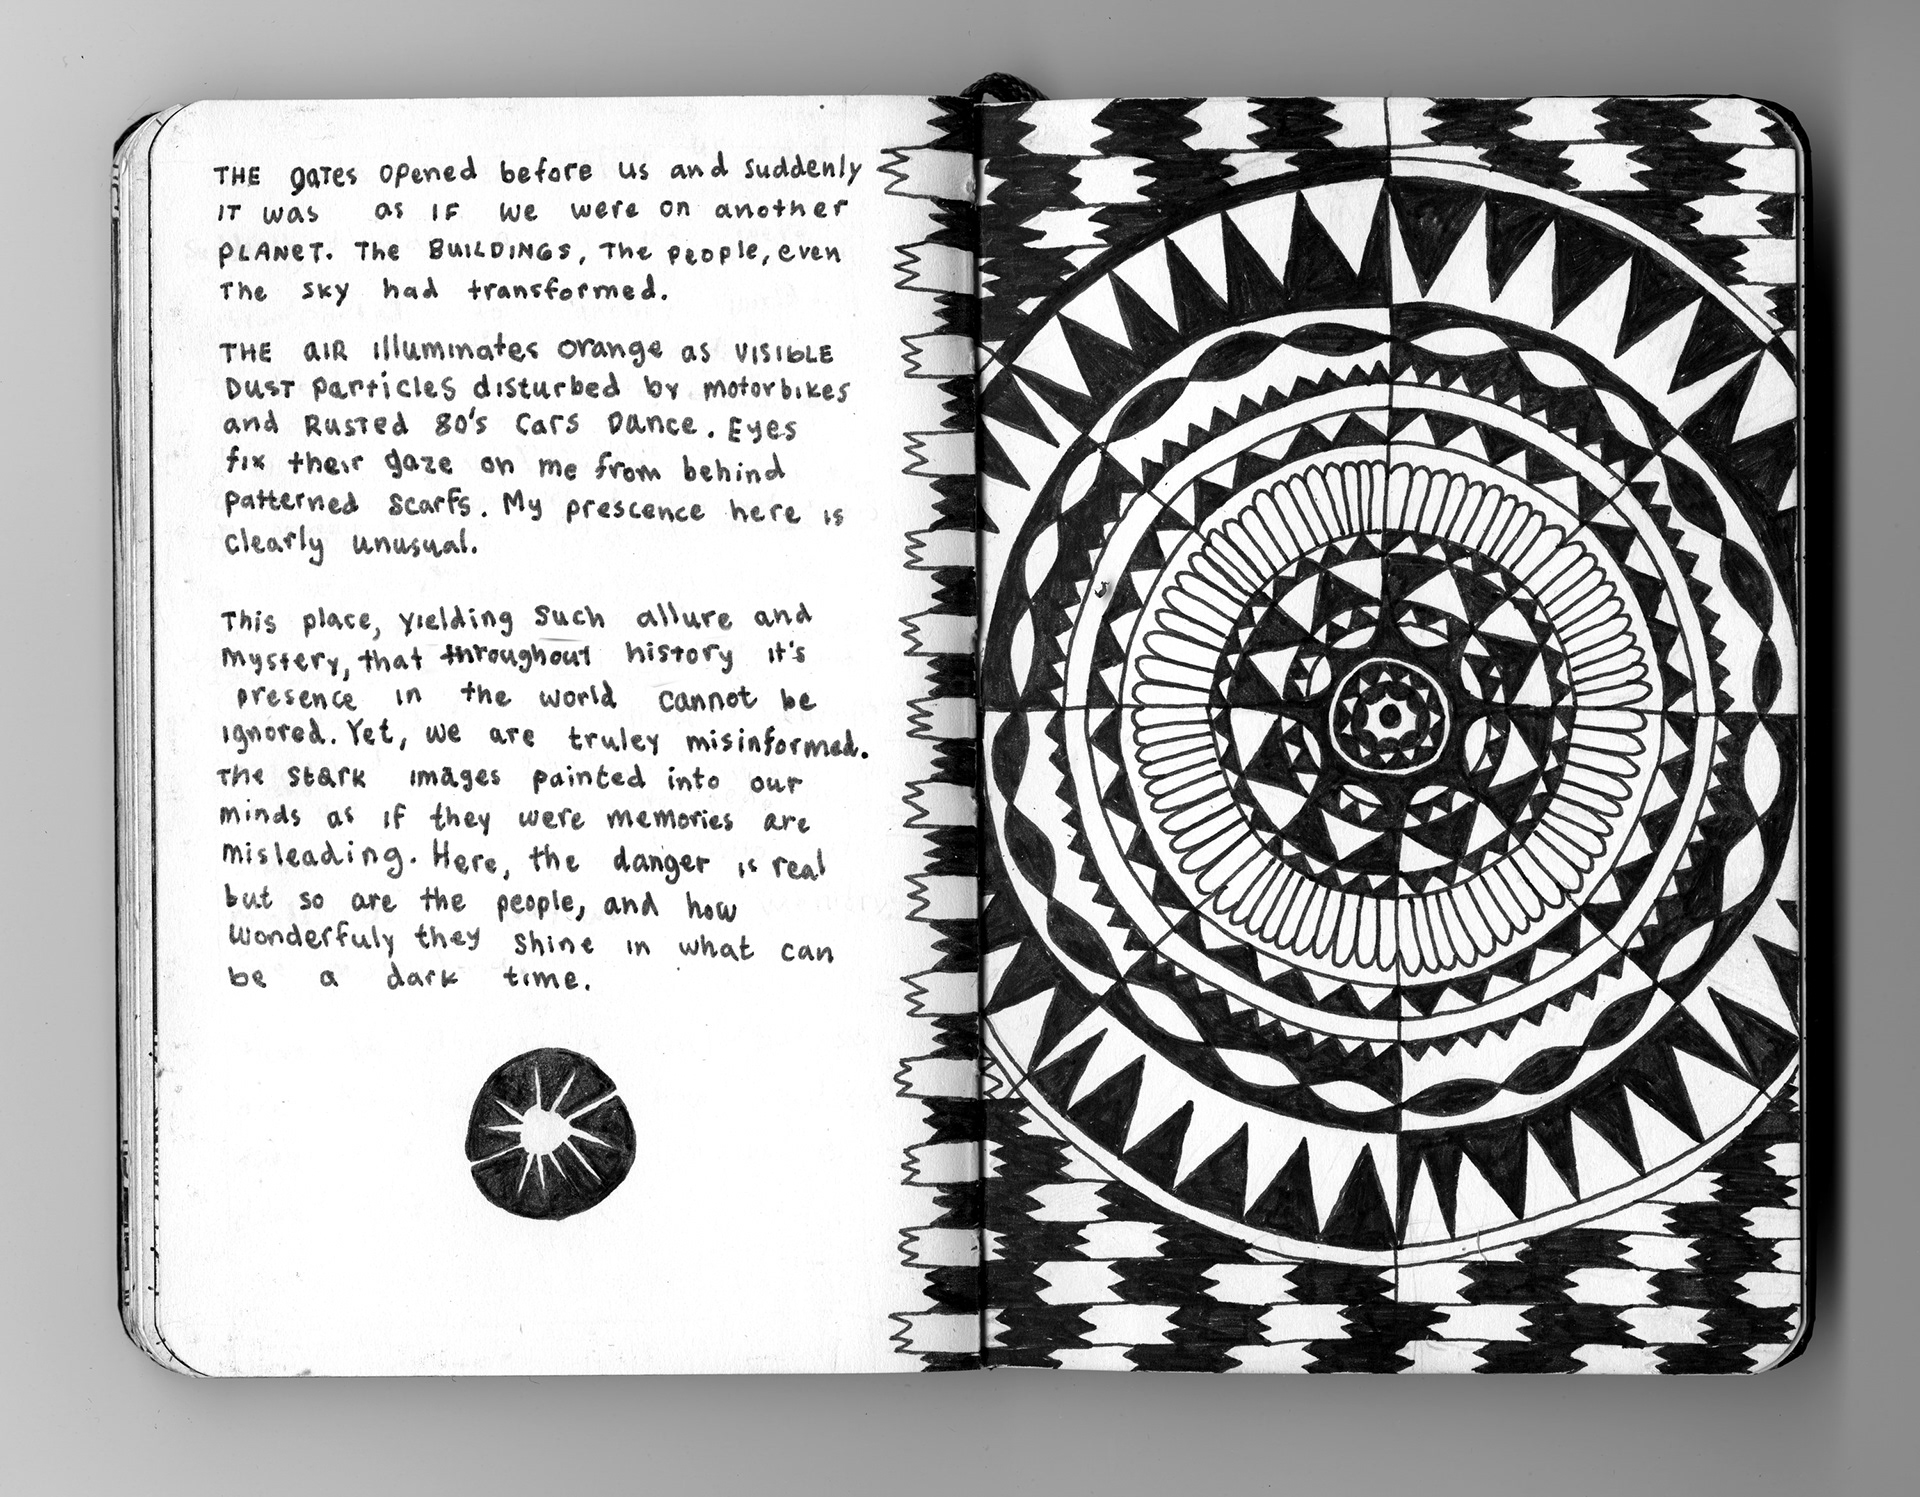 THE gATes opened before us and suddenly
IT was as IF we were on another
PLANET. The BUILDINGS, The people, even
The sky had transformed.
THE aIR illuminates orange as VISIbLE
DUST particles disturbed by motorbikes
and RUSTED 80's Cars Dance. Eyes
fix their gaze on me from behind
patterned scarfs. My prescence here is
clearly unusual.
This place, yielding such allure and
mystery, that throughout history it's
presence in the world cannot be
ignored. Yet, we are truley misinformed.
The stark images painted into our
minds as if they were memories are
misleading. Here, the danger is real
but so are the people, and how
wonderfuly they shine in what can
be a dark time.